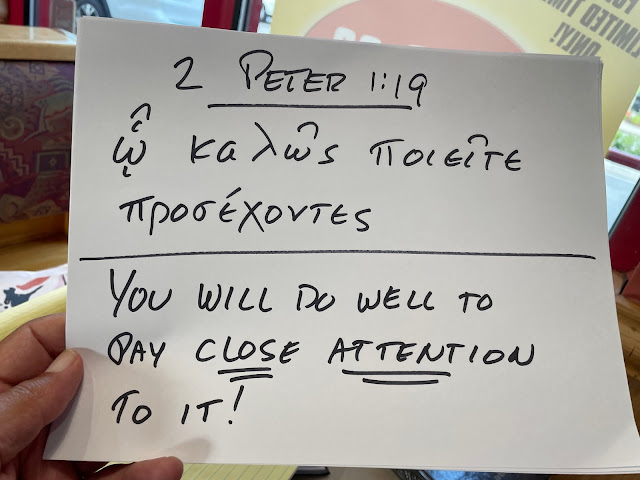 2 PETER 1:19
ᾧ καλῶς ποιεῖτε
προσέχοντες
YOU WILL DO WELL TO
PAY CLOSE ATTENTION
TO IT!
LIMITED TIME
ONLY!